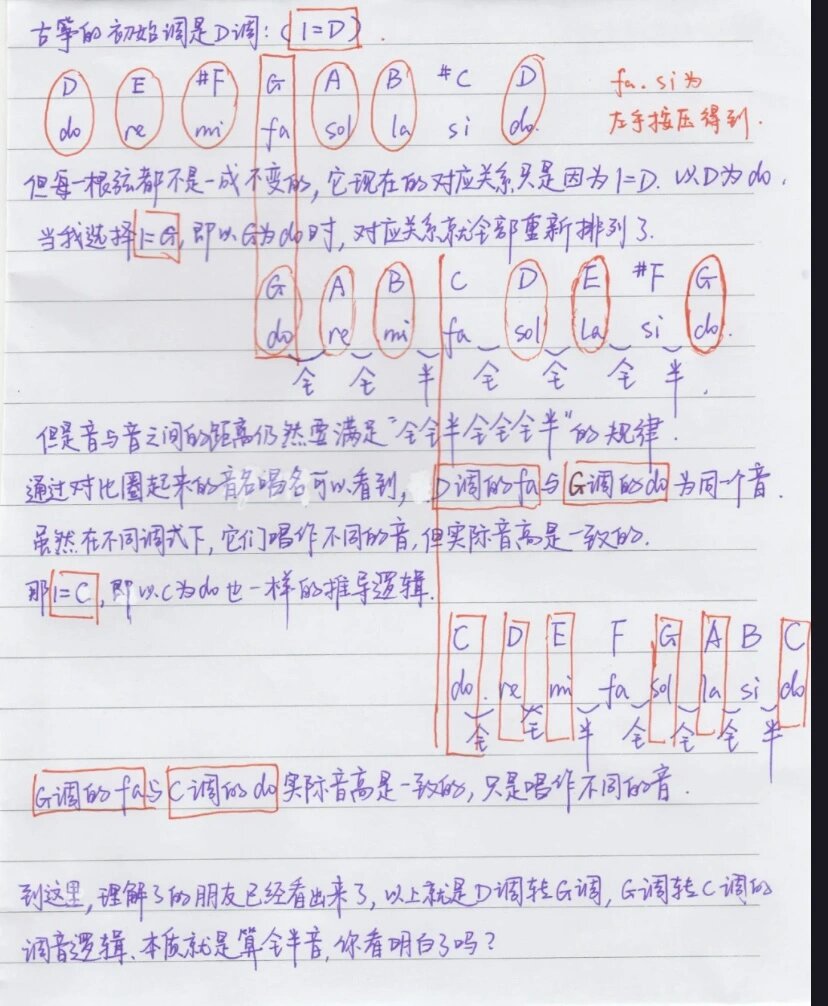 古筝的初始调是D调:(1=D).
D E #F G A B #C D
do re mi fa sol la si do.
fa.si为
左手按压得到.
但每一根弦都不是一成不变的,它现在的对应关系只是因为1=D.以D为do.
当我选择1=G,即以G为do时,对应关系就全部重新排列了.
G A B C D E #F G
do re mi fa sol La si do.
全 全 半 全 全 全 半.
但是音与音之间的距离仍然要满足"全全半全全全半"的规律.
通过对比圈起来的音名唱名可以看到, D调的fa与G调的do为同一个音.
虽然在不同调式下,它们唱作不同的音,但实际音高是一致的.
那1=C,即以C为do也一样的推导逻辑.
C D E F G A B C
do. re mi fa sol la si do
全 全 半 全 全 全 半
G调的fa与C调的do实际音高是一致的,只是唱作不同的音.
到这里,理解了的朋友已经看出来了,以上就是D调转G调,G调转C调的
调音逻辑.本质就是算全半音,你看明白了吗?